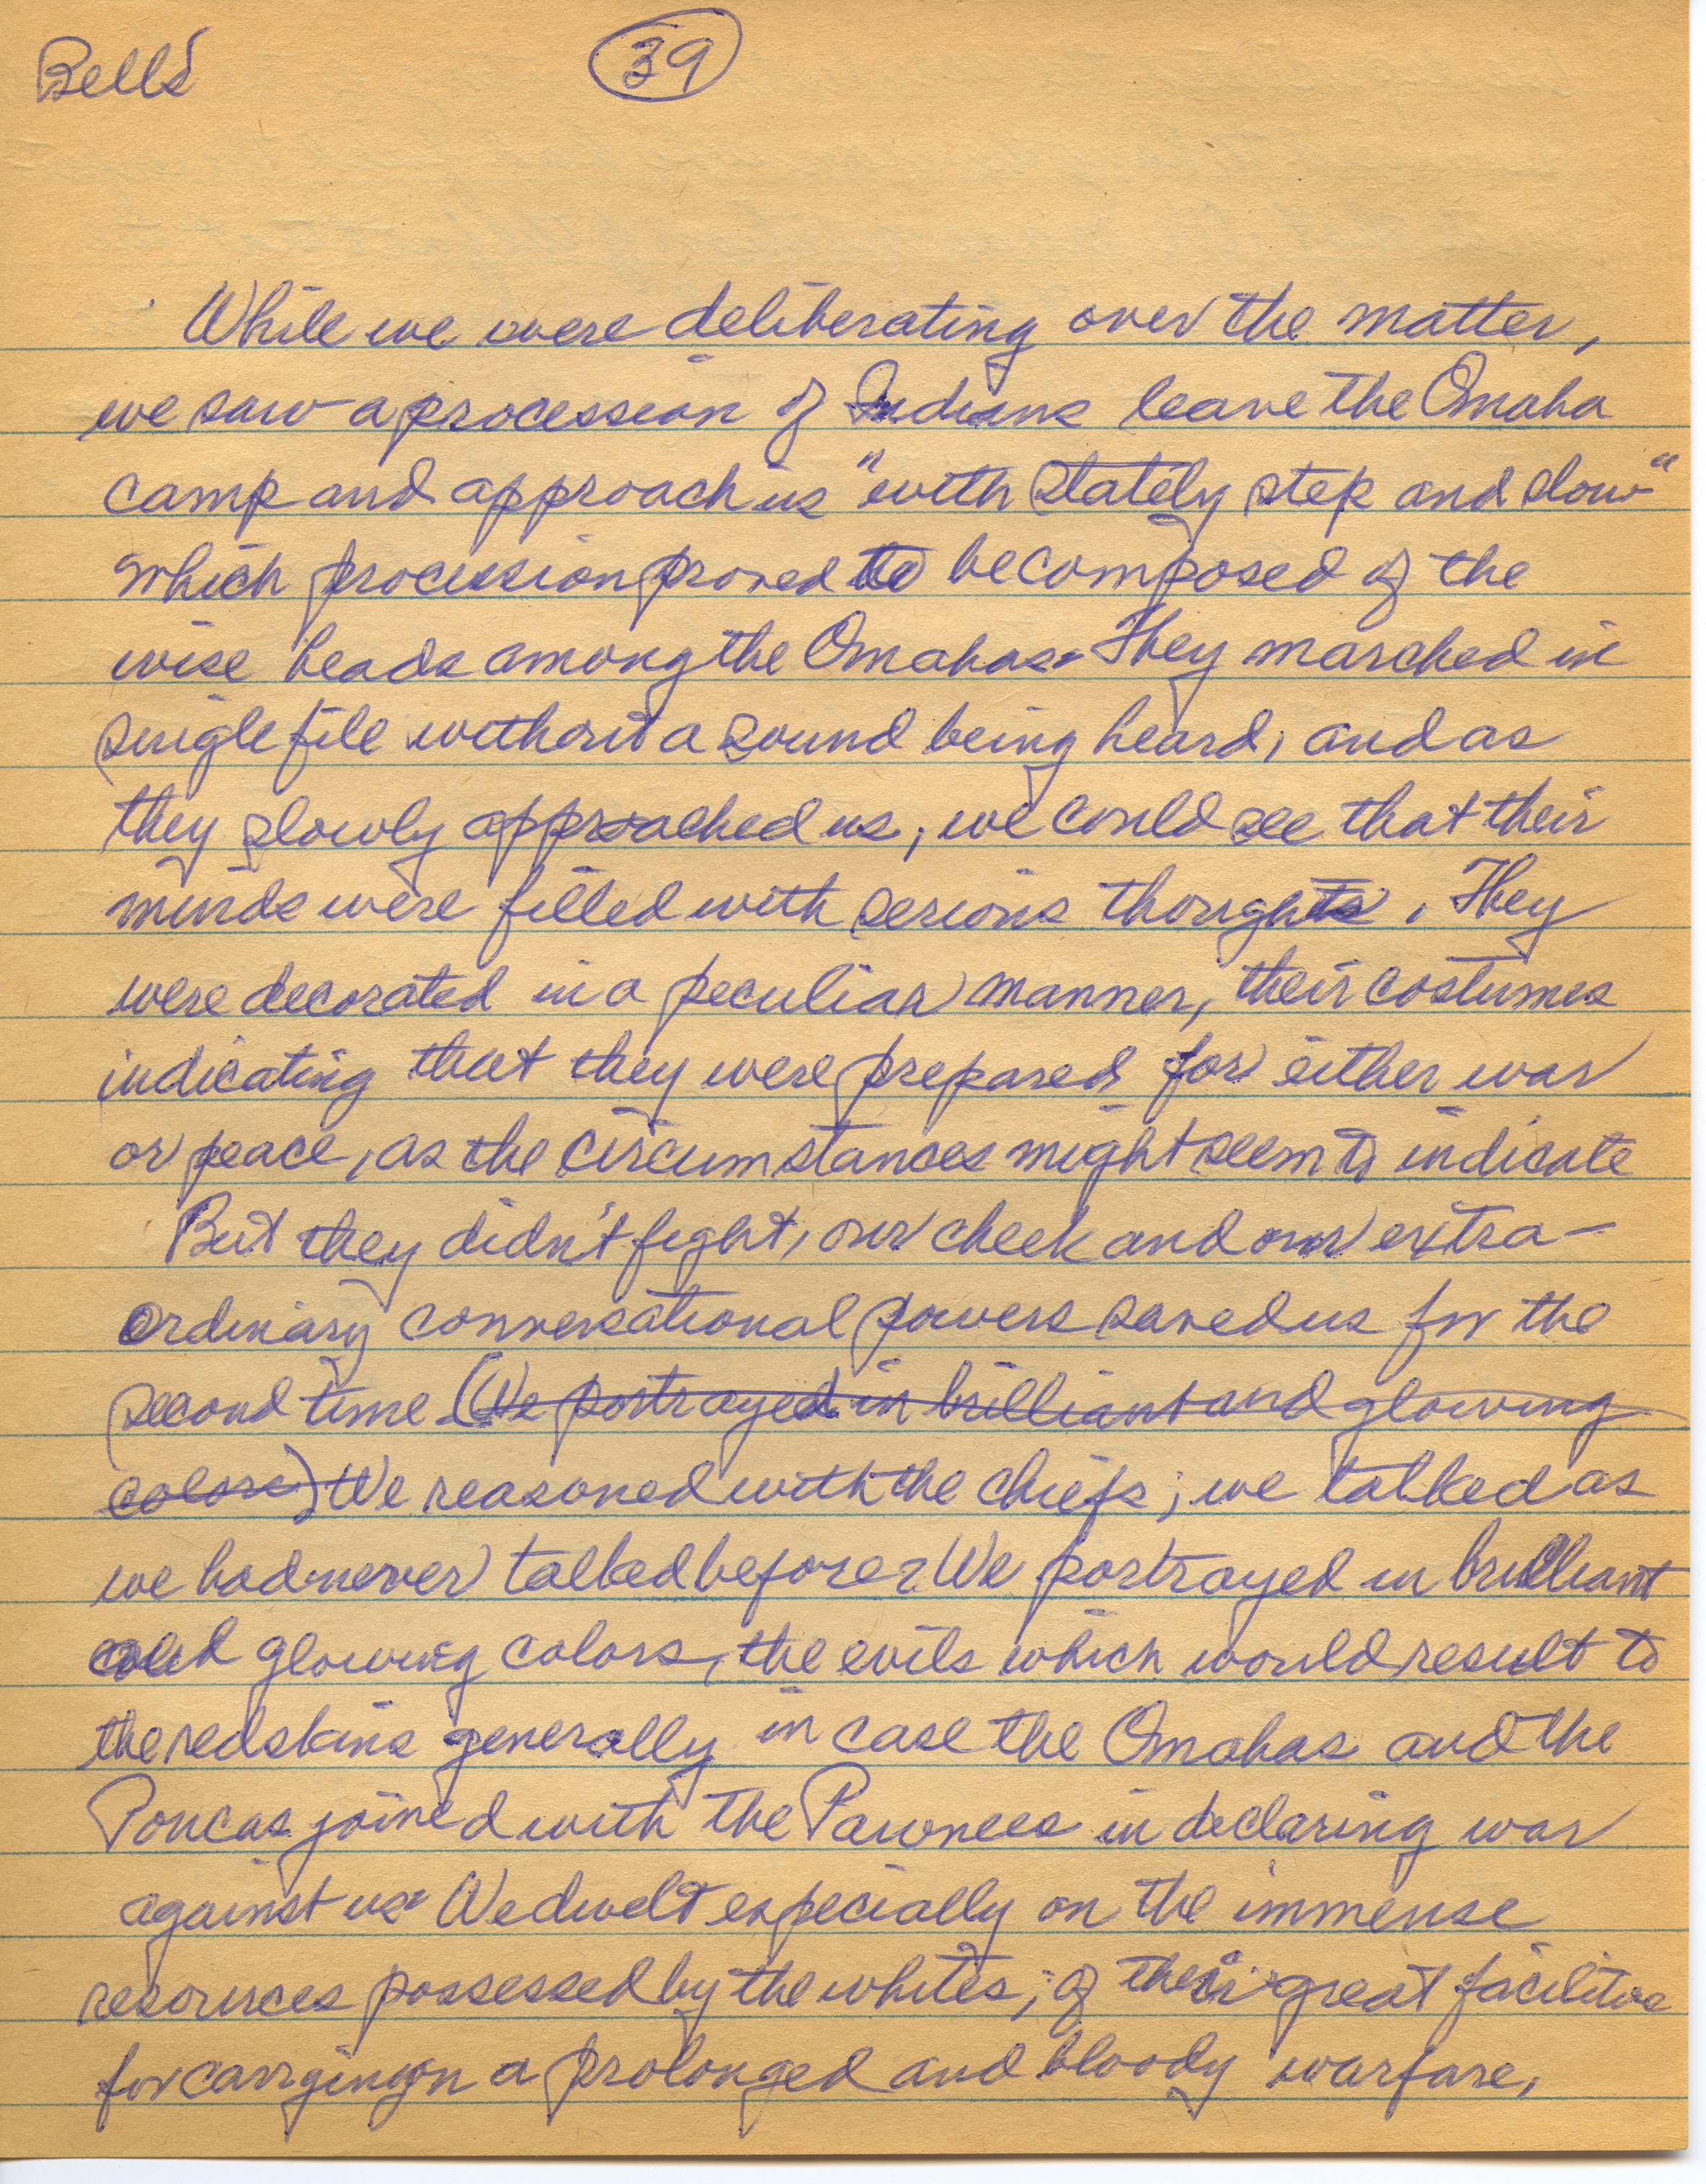 Bells
39
While we were deliberating over the matter,
we saw a procession of Indians leave the Omaha
camp and approach us "with stately step and slow"
which procession proved to be composed of the
wise heads among the Omahas. They marched in
single file without a sound being heard, and as
they slowly approached us, we could see that their
minds were filled with serious thoughts. They
were decorated in a peculiar manner, their costumes
indicating that they were prepared for either war
or peace, as the circumstances might seem to indicate
But they didn't fight, our cheek and our extra-
ordinary conversational powers saved us for the
second time (We portrayed in brilliant and glowing
colors) We reasoned with the chiefs; we talked as
we had never talked before. We portrayed in brilliant
and glowing colors, the evils which would result to
the redskins generally in case the Omahas and the
Poncas joined with the Pawnees in declaring war
against us. We dwelt especially on the immense
resources possessed by the whites; of their great facilities
for carrying on a prolonged and bloody warfare,